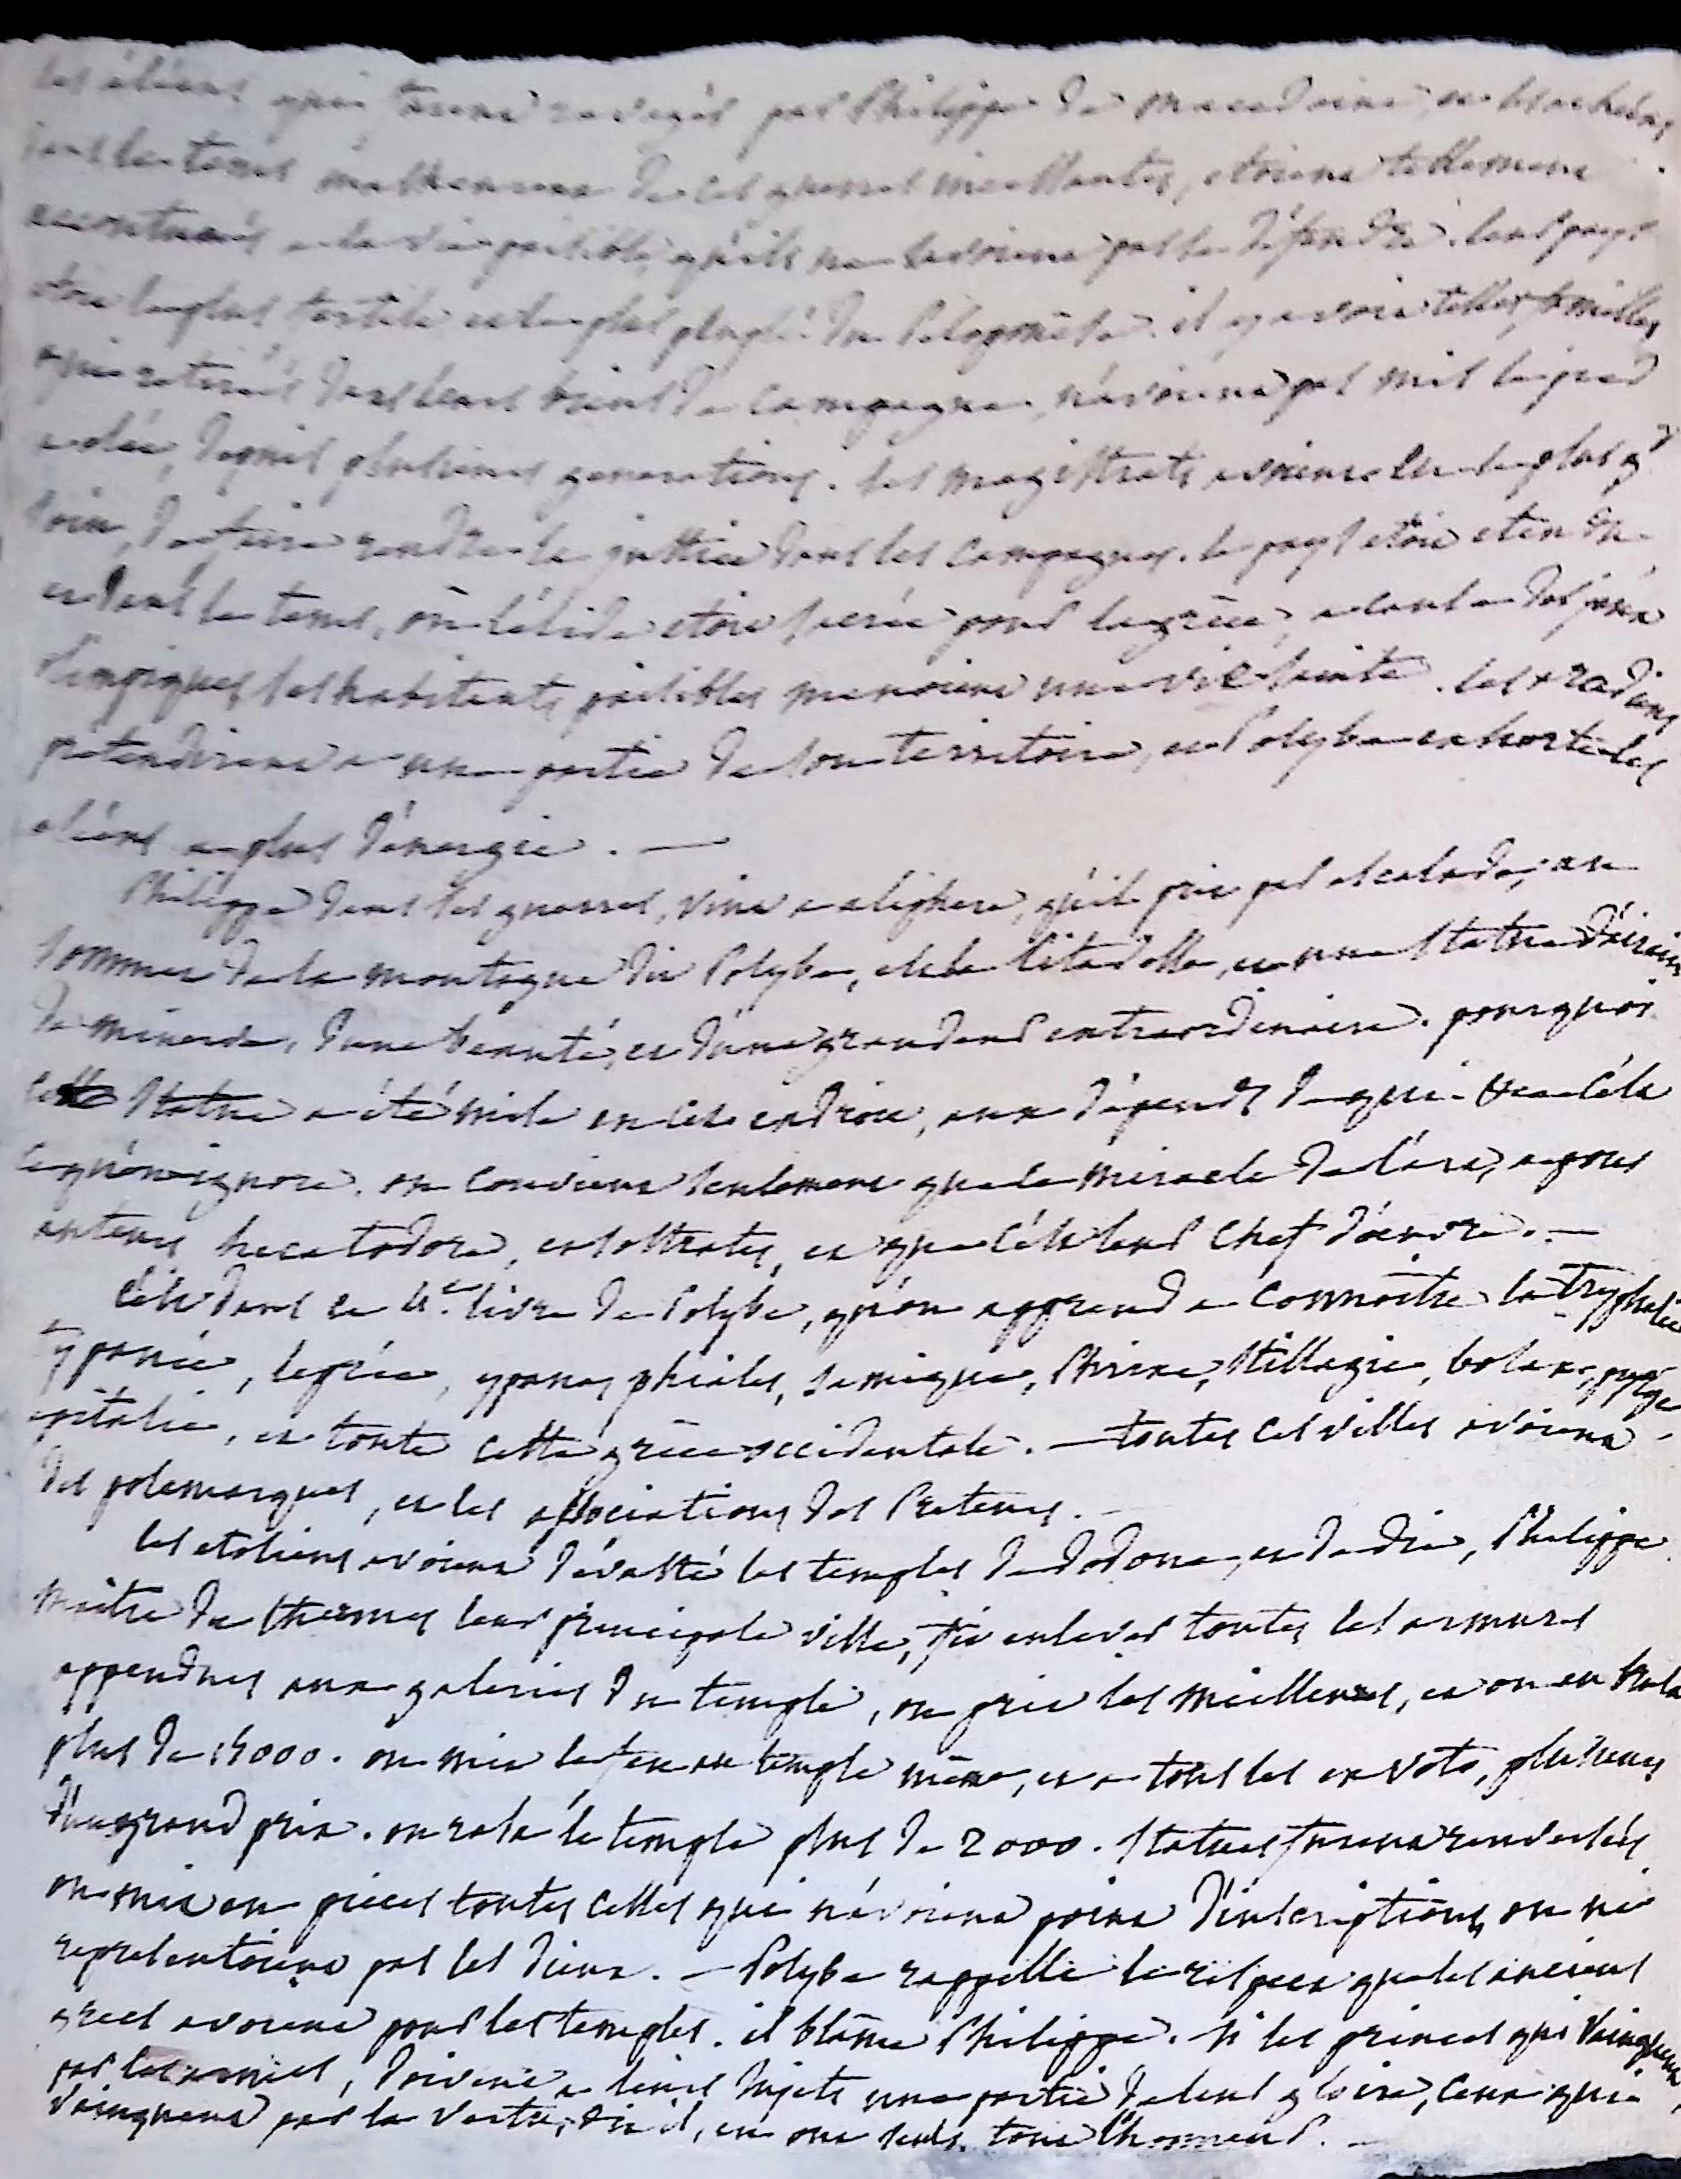 les éléens qui furent ravagés par Philippe de Macedoine, et les achéens
dans les tems malheureux de ces guerres sanglantes, etoient tellement
accoutumés a la vie paisible, qu'ils ne savoient pas se défendre. leur pays
etoit le plus fertile et le plus peuplé du Peloponèse. il y avoit telles familles,
qui retirées dans leurs biens de campagne, n'avoient pas mis le pied
a elée, depuis plusieurs generations. les magistrats avoient eu le plus gd
soin, de faire rendre la justice dans les campagnes. le pays etoit etendu
et dans le tems, où l'elide etoit sacrée pour la grèce, a cause des jeux
olimpiques, les habitants paisibles menoient une vie sainte. les arcadiens
pretendirent a une partie de son territoire, et Polybe exhorte les
eléens a plus d'énergie. —
Philippe dans ses guerres, vint a aliphere, qu'il prit par escalade, au
sommet de la montagne dit Polybe, est la citadelle, et une statue d'airain
de minerve, d'une beauté, et d'une grandeur extraordinaire. pourquoi
cette statue a été mise en cet endroit, aux dépends de qui c'est
ce qu'on ignore. on convient seulement que le miracle de l'art, a pour
auteurs hecatodore, et sostrates, et que c'est leur chef d'œuvre. —
c'est dans ce 4e. livre de Polybe, qu'on apprend a connoître la tryphalie
typanée, lepreé, ypane, phiales, samique, Phrixe, stillagie, bolax, pyrge
epitalie, et toute cette grèce occidentale. — toutes ces villes avoient
des polemarques, et les associations des Preteurs. —
les etoliens avoient dévasté les temples de dodone, et de die, Philippe
maitre de thermes leur principale ville, fit enlever toutes les armures
appendues aux galeries du temple, on prit les meilleures, et on en brula
plus de 15000. on mit le feu au temple même, et a tous les ex voto, plusieurs
d'un grand prix. on rasa le temple plus de 2000. statues furent renversées
on mit en pieces toutes celles qui n'avoient point d'inscriptions, ou ne
representoient pas les dieux. — Polybe rappelle le respect que les anciens
grecs avoient pour les temples. il blâme Philippe. si les princes qui vainquent
par les armes, doivent a leurs sujets une partie de leur gloire, ceux qui
vainquent par la vertu, dit il, en ont seuls tout l'honneur. —